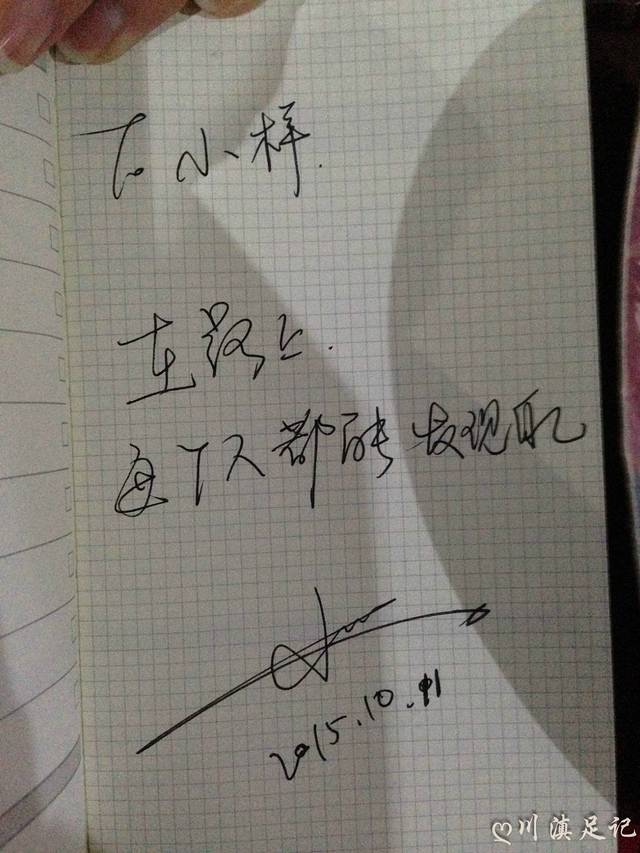 To 小样.
在路上.
每个人都能发现自己
2015.10.11
川滇足记